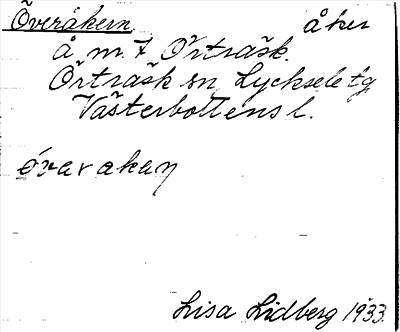 Överåkern. åker
å m. 7 Örträsk.
Örträsk sn Lycksele tg
Västerbottens l.
övarakaŋ
Lisa Lidberg 1933.